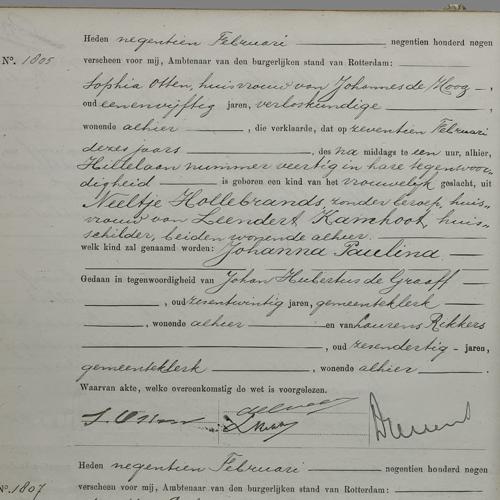 Heden negentien Februari negentien honderd negen
N°. 1805 verscheen voor mij, Ambtenaar van den burgerlijken stand van Rotterdam:
Sophia Otten, huisvrouw van Johannes de Hoog,
oud eenenvijftig jaren, verloskundige,
wonende alhier, die verklaarde, dat op zeventien Februari
dezes jaars, des na middags te een uur, alhier,
Hillelaan nummer veertig in hare tegenwoor-
digheid is geboren een kind van het vrouwelijk geslacht, uit
Neeltje Hollebrands, zonder beroep, huis-
vrouw van Leendert Kamhoot, huis-
schilder, beiden wonende alhier.
welk kind zal genaamd worden: Johanna Paulina
Gedaan in tegenwoordigheid van Johan Hubertus de Graaff
, oud zesentwintig jaren, gemeenteklerk
, wonende alhier en van Laurens Rekkers
, oud zesendertig jaren,
gemeenteklerk, wonende alhier.
Waarvan akte, welke overeenkomstig de wet is voorgelezen.
S. Otten
Heden negentien Februari negentien honderd negen
N°. 1807 verscheen voor mij, Ambtenaar van den burgerlijken stand van Rotterdam: